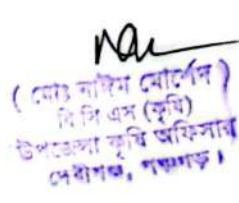 ( মোঃ নাঈম মোর্শেদ )
বি সি এস (কৃষি)
উপজেলা কৃষি অফিসার
দেবীগঞ্জ, পঞ্চগড় ।